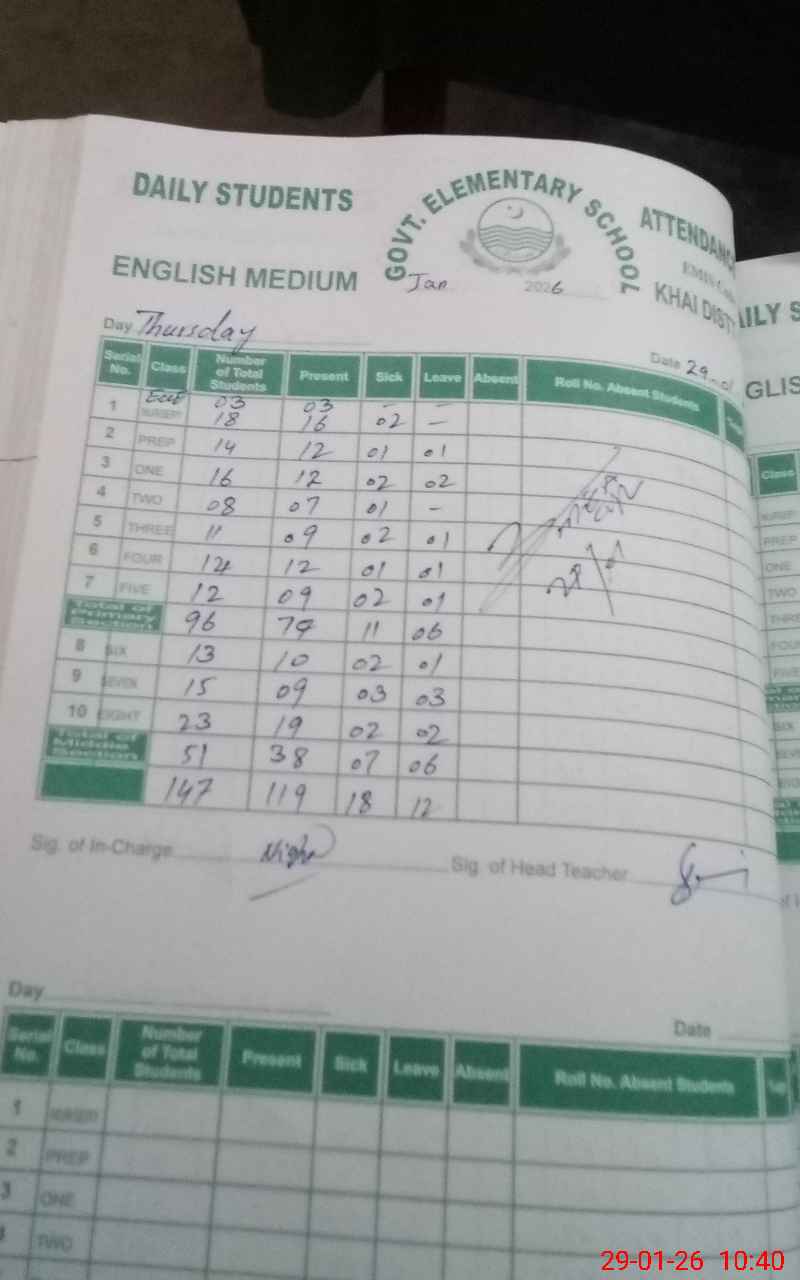 DAILY STUDENTS
GOVT. ELEMENTARY SCHOOL
ATTENDANC
ENGLISH MEDIUM
Jan 2026
KHAI DIST
Day Thursday
Date 29-01
Serial No. Class Number of Total Students Present Sick Leave Absent Roll No. Absent Students
ECE 03 03 - -
1 NURSERY 18 16 02 -
2 PREP 14 12 01 01
3 ONE 16 12 02 02
4 TWO 08 07 01 -
5 THREE 11 09 02 01
6 FOUR 14 12 01 01
7 FIVE 12 09 02 01
Total of Primary Section 96 79 11 06
8 SIX 13 10 02 01
9 SEVEN 15 09 03 03
10 EIGHT 23 19 02 02
Total of Middle Section 51 38 07 06
147 119 18 12
Sig. of In-Charge
Sig. of Head Teacher
Day
Date
Serial No. Class Number of Total Students Present Sick Leave Absent Roll No. Absent Students
1 NURSERY
2 PREP
3 ONE
TWO
AILY S
GLIS
Class
PREP
ONE
TWO
THRE
FOU
FIVE
SIX
SEVE
29-01-26 10:40